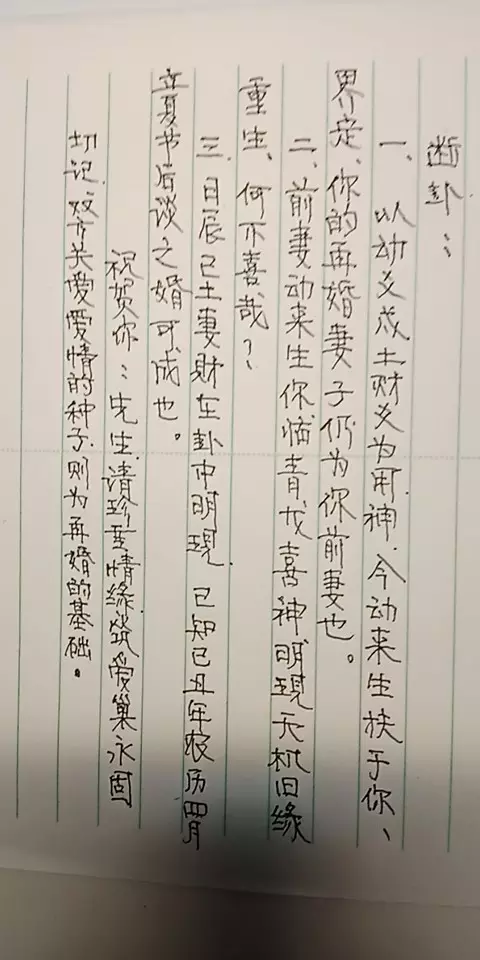 断卦：
一、以动爻戌土财爻为用神、今动来生扶于你、
界定、你的再婚妻子仍为你前妻也。
二、前妻动来生你临青龙喜神明现天机旧缘
重生、何不喜哉？
三、日辰己土妻财在卦中明现、已知己丑年农历四月
立夏节后谈之婚可成也。
祝贺你：先生、请珍重情缘、筑爱巢永固
切记、双方关爱爱情的种子、则为再婚的基础。